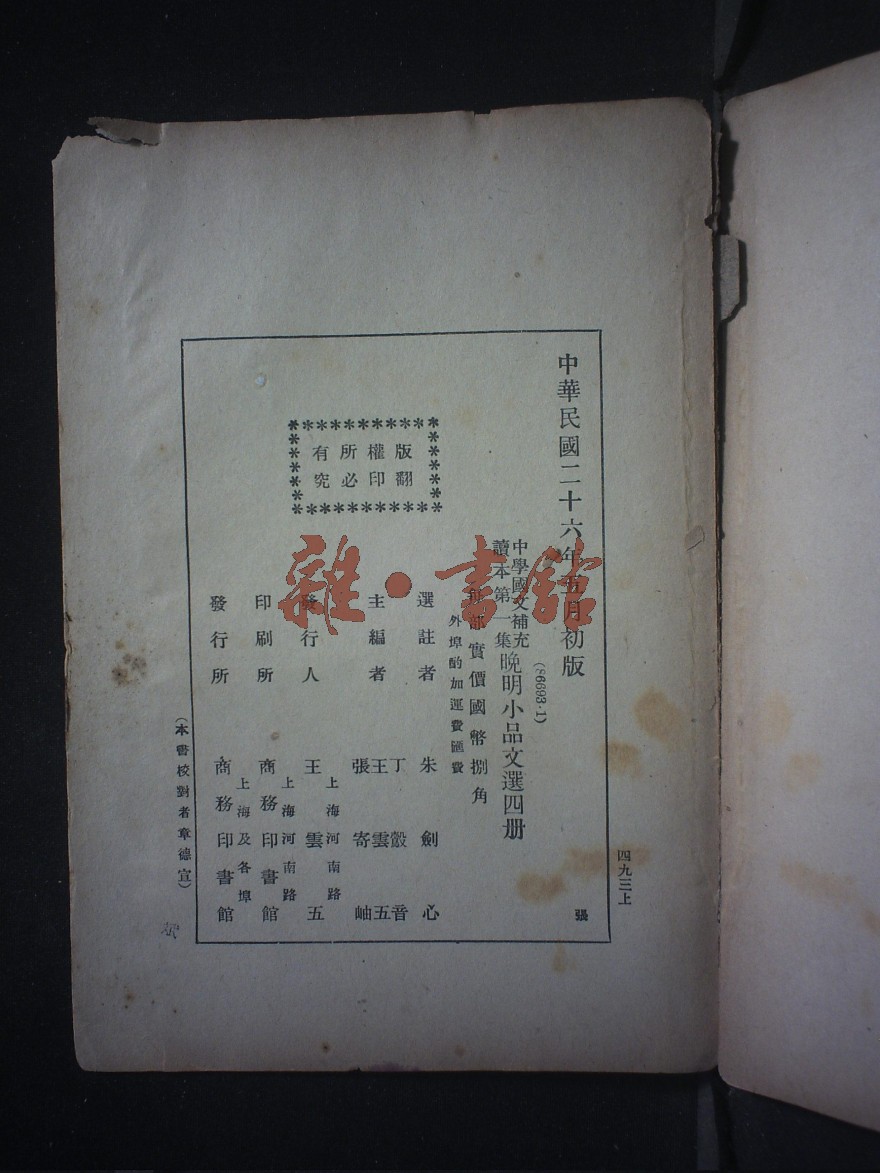 四九三上
中華民國二十六年五月初版
張
(36693·1)
中學國文補充
讀本第一集
晚明小品文選四册
每部實價國幣捌角
外埠酌加運費匯費
版權所有
翻印必究
選註者 朱劍心
主編者 丁嗀音
王雲五
張寄岫
發行人 王雲五
上海河南路
印刷所 商務印書館
上海河南路
發行所 商務印書館
上海及各埠
(本書校對者章德宣)
雜·書館